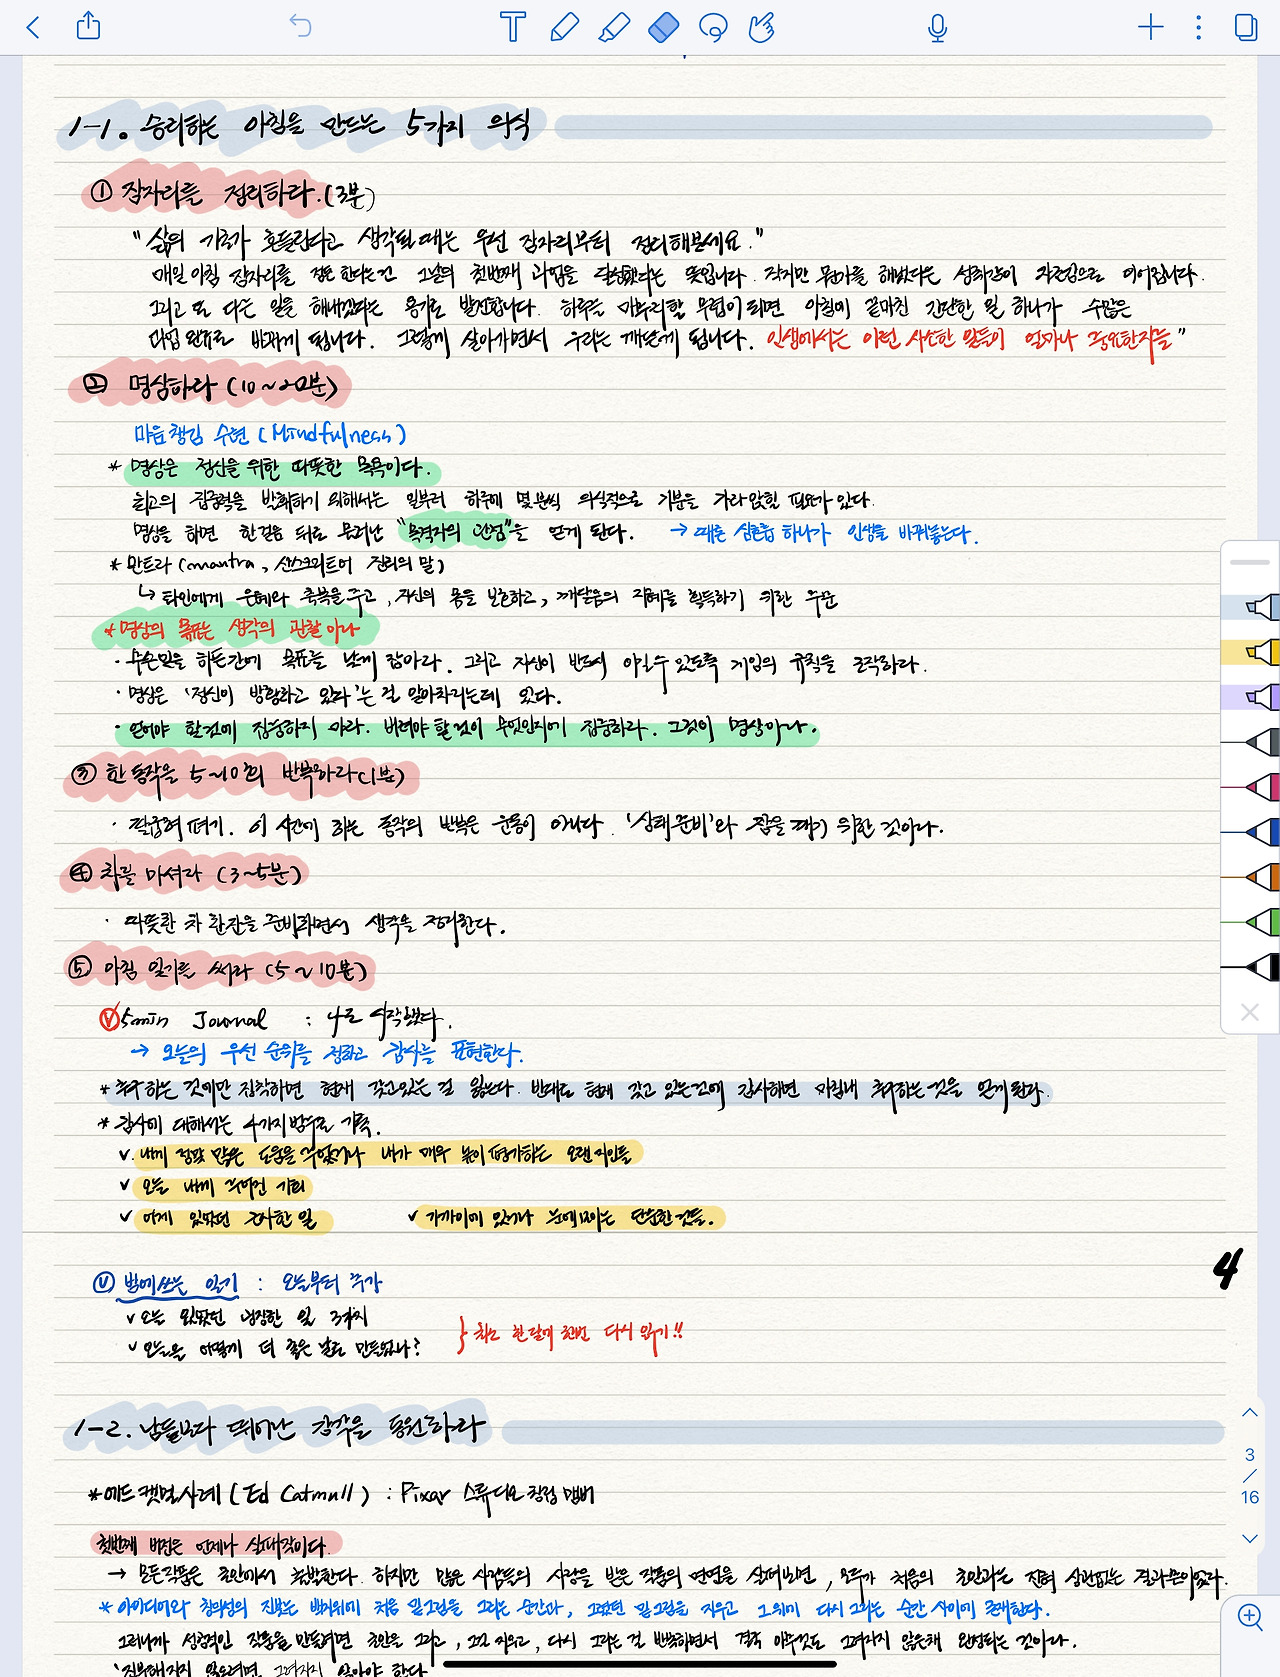 1-1. 승리하는 아침을 만드는 5가지 의식
① 잠자리를 정리하라. (3분)
"삶의 기로가 흔들린다고 생각될 때는 우선 잠자리부터 정리해보세요."
매일 아침 잠자리를 정돈한다는건 그날의 첫번째 과업을 달성했다는 뜻입니다. 작지만 뭔가를 해냈다는 성취감이 자존감으로 이어집니다.
그리고 또 다른 일을 해내겠다는 용기로 발전합니다. 하루를 마무리할 무렵이 되면 아침에 끝마친 간단한 일 하나가 수많은
과업 완료로 바뀌게 됩니다. 그렇게 살아가면서 우리는 깨닫게 됩니다. 인생에서는 이런 사소한 일들이 얼마나 중요한지를"
② 명상하라 (10~20분)
마음챙김 수련 (Mindfulness)
* 명상은 정신을 위한 따뜻한 목욕이다.
최고의 집중력을 발휘하기 위해서는 일부러 하루에 몇분씩 의식적으로 기분을 가라앉힐 필요가 있다.
명상을 하면 한걸음 뒤로 물러난 "목격자의 관점"을 얻게 된다. → 때론 심호흡 하나가 인생을 바꿔놓는다.
* 만트라 (mantra, 산스크리트어 진리의 말)
↳ 타인에게 은혜와 축복을 주고, 자신의 몸을 보존하고, 깨달음의 지혜를 획득하기 위한 주문
* 명상의 목표는 생각의 관찰이다
· 무슨일을 하든간에 목표를 낮게 잡아라. 그리고 자신이 반드시 이길수 있도록 게임의 규칙을 조작하라.
· 명상은 '정신이 방황하고 있다'는 걸 알아차리는데 있다.
· 얻어야 할것에 집중하지 마라. 버려야 할것이 무엇인지에 집중하라. 그것이 명상이다.
③ 한 동작을 5~10회 반복하라 (1분)
· 팔굽혀 펴기. 이 시간에 하는 동작의 반복은 운동이 아니다. '상태준비'와 잠을 깨기 위한 것이다.
④ 차를 마셔라 (3~5분)
· 따뜻한 차 한잔을 준비하면서 생각을 정리한다.
⑤ 아침 일기를 써라 (5~10분)
ⓥ 5min Journal : 나도 시작했다.
→ 오늘의 우선 순위를 정하고 감사를 표현한다.
* 추구하는 것에만 집착하면 현재 갖고있는 걸 잃는다. 반대로 현재 갖고 있는것에 감사하면 마침내 추구하는 것을 얻게 된다.
* 감사에 대해서는 4가지 범주로 기록.
v. 내게 정말 많은 도움을 주었거나 내가 매우 높이 평가하는 오랜 지인들
v 오늘 내게 주어진 기회
v 어제 있었던 근사한 일 v 가까이에 있거나 눈에 보이는 단순한 것들.
4
ⓥ 밤에 쓰는 일기 : 오늘부터 추가
v 오늘 있었던 굉장한 일 3가지
v 오늘을 어떻게 더 좋은 날로 만들었나?
} 최소 한달에 한번 다시 읽기!!
1-2. 남들보다 뛰어난 감각을 동원하라
* 에드 캣멀 사례 (Ed Catmull) : Pixar 스튜디오 창립 멤버
첫번째 버전은 언제나 실패작이다.
→ 모든 작품은 초안에서 출발한다. 하지만 많은 사람들의 사랑을 받은 작품의 면면을 살펴보면, 모두가 처음의 초안과는 전혀 상관없는 결과물이었다.
* 아이디어와 창의성의 진보는 백지위에 처음 밑그림을 그리는 순간과, 그렸던 밑그림을 지우고 그 위에 다시 그리는 순간 사이에 존재한다.
그러니까 성공적인 작품을 만들려면 초안을 그리고, 그걸 지우고, 다시 그리는 걸 반복하면서 결국 아무것도 그려지지 않은채 완성되는 것이다.
그려지지 않아야 한다
3
/
16